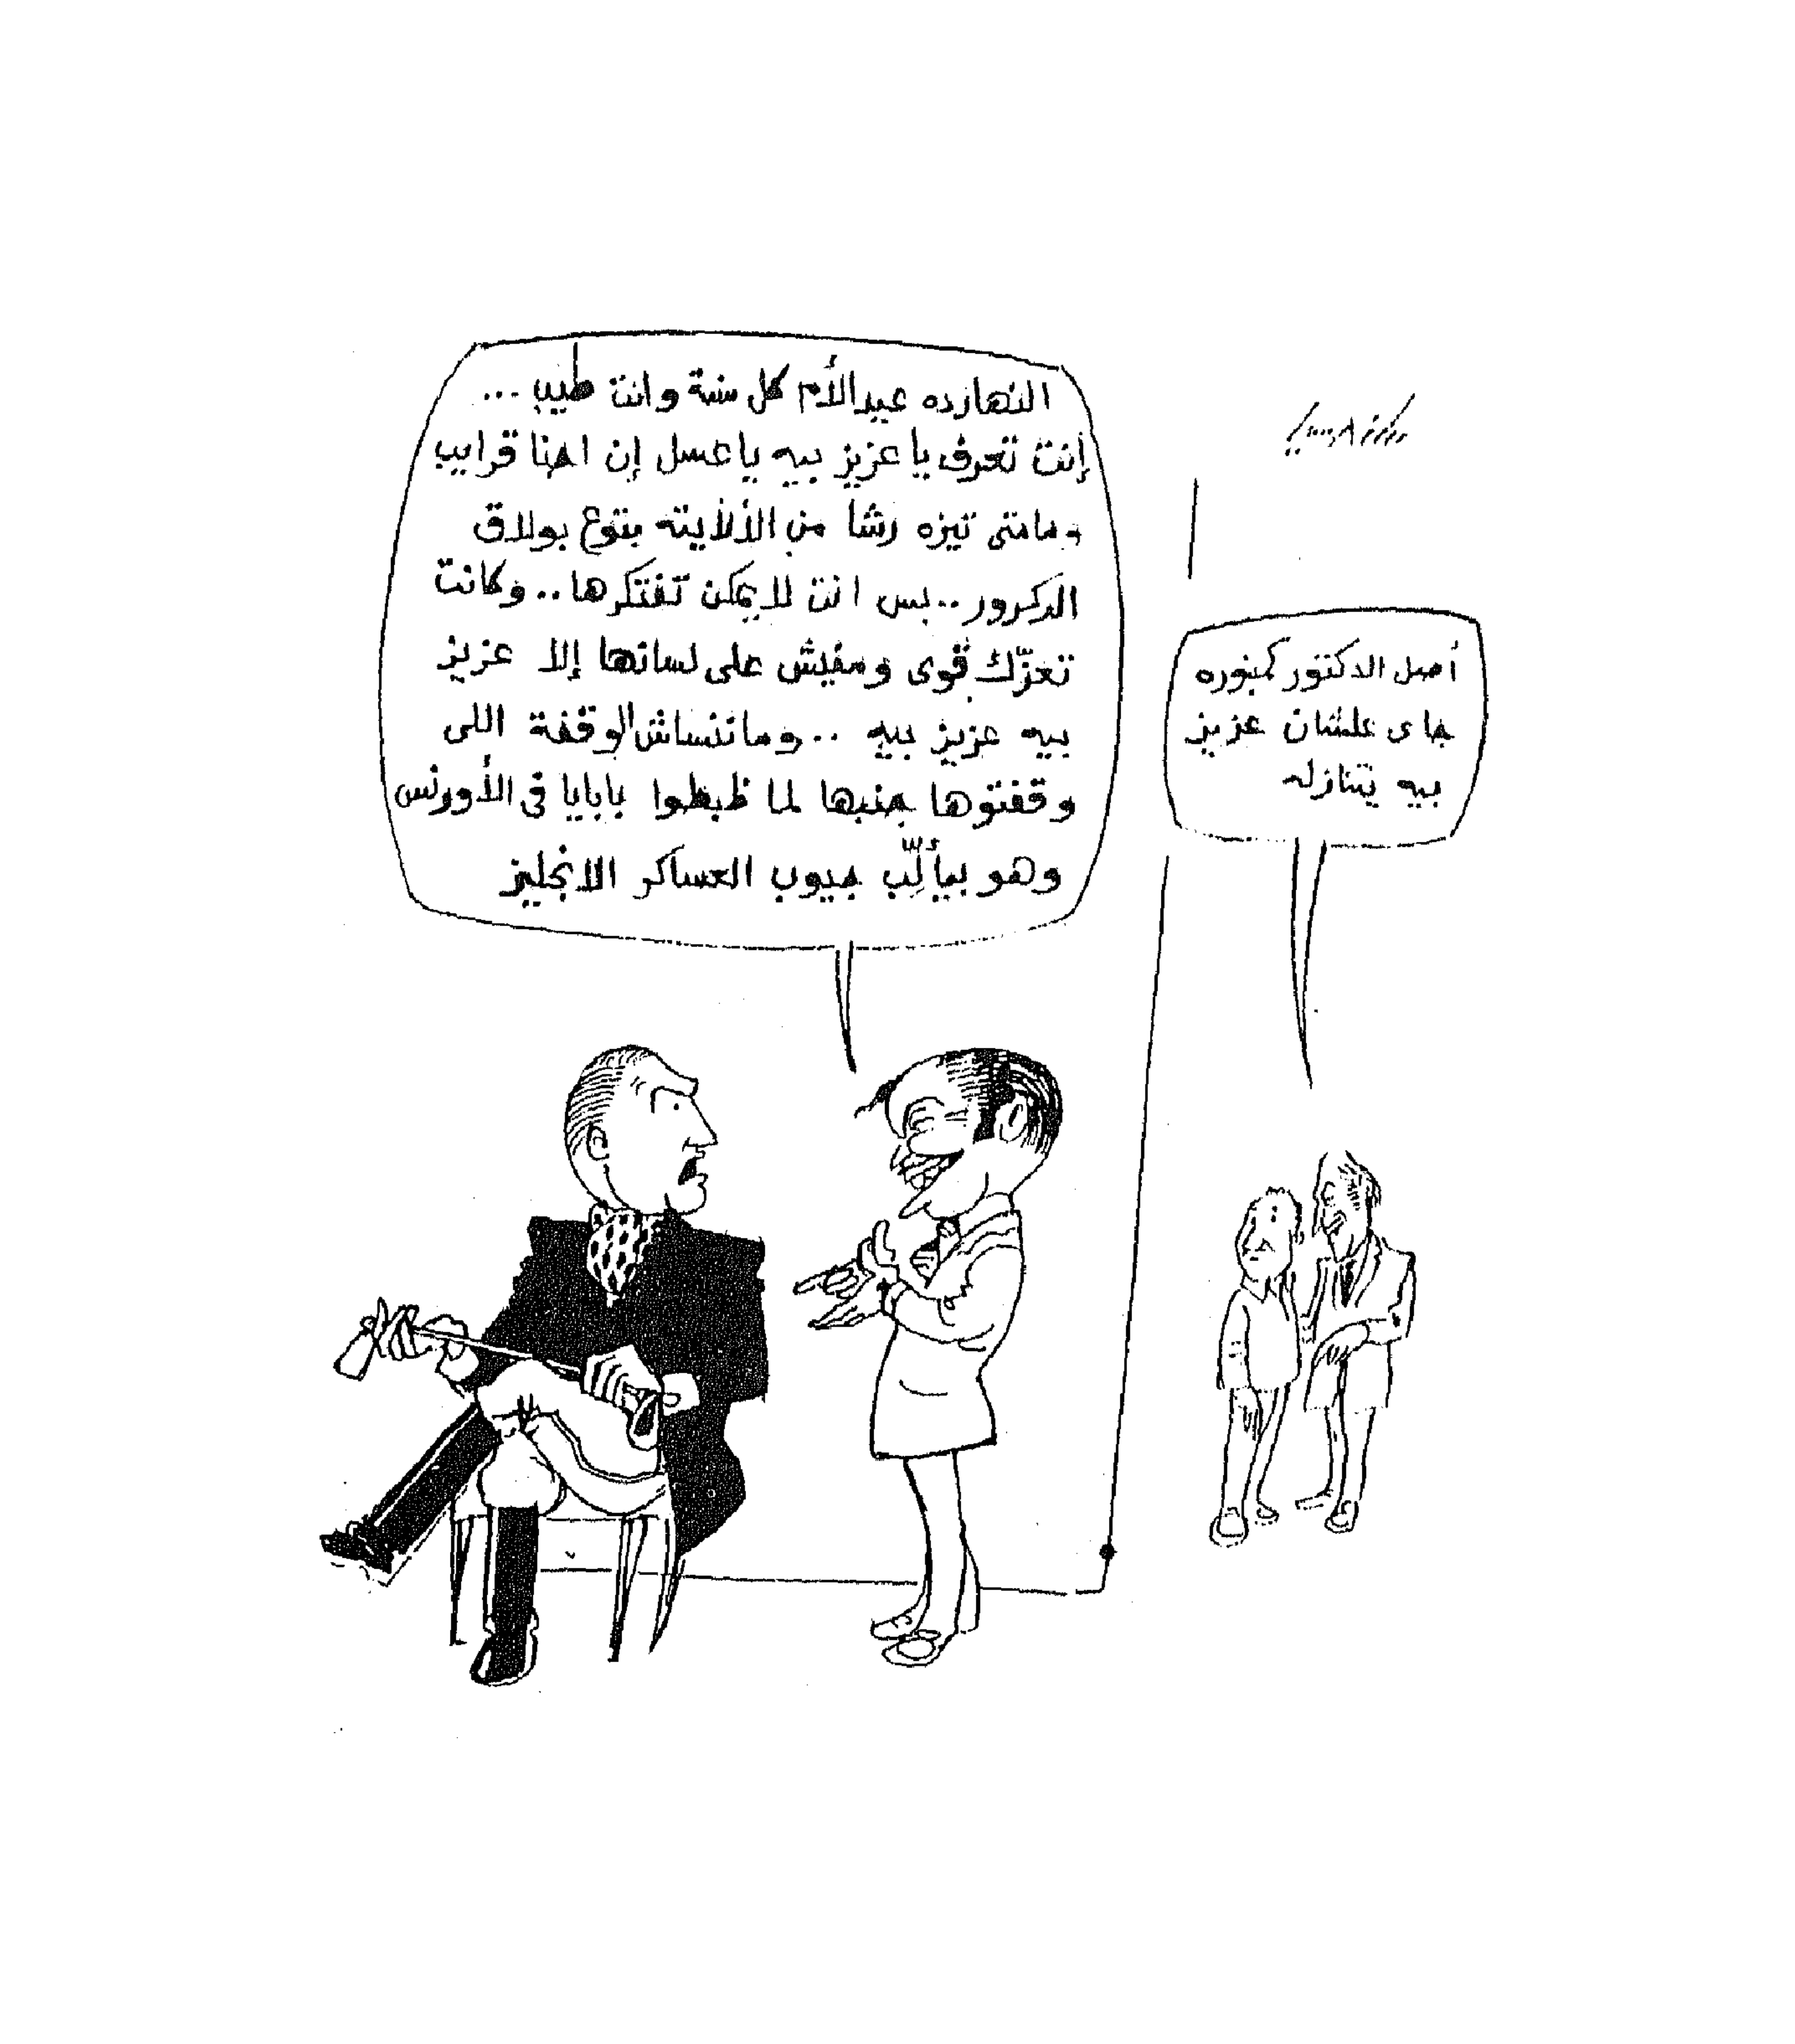 النهارده عيد الأم كل سنة وانت طيب ...
إنت تعرف يا عزيز بيه يا عسل إن احنا قرايب
ومامتى تيزه رشا من الألايته بتوع بولاق
الدكرور .. بس انت لا يمكن تفتكرها .. وكانت
تعزّك قوى ومفيش على لسانها إلا عزيز
بيه عزيز بيه .. وماتنساش الوقفة اللى
وقفتوها جنبها لما ظبطوا بابايا فى الأورنس
وهو بيألّب جيوب العساكر الانجليز
أصل الدكتور كمبوره
جاى علشان عزيز
بيه يتنازله